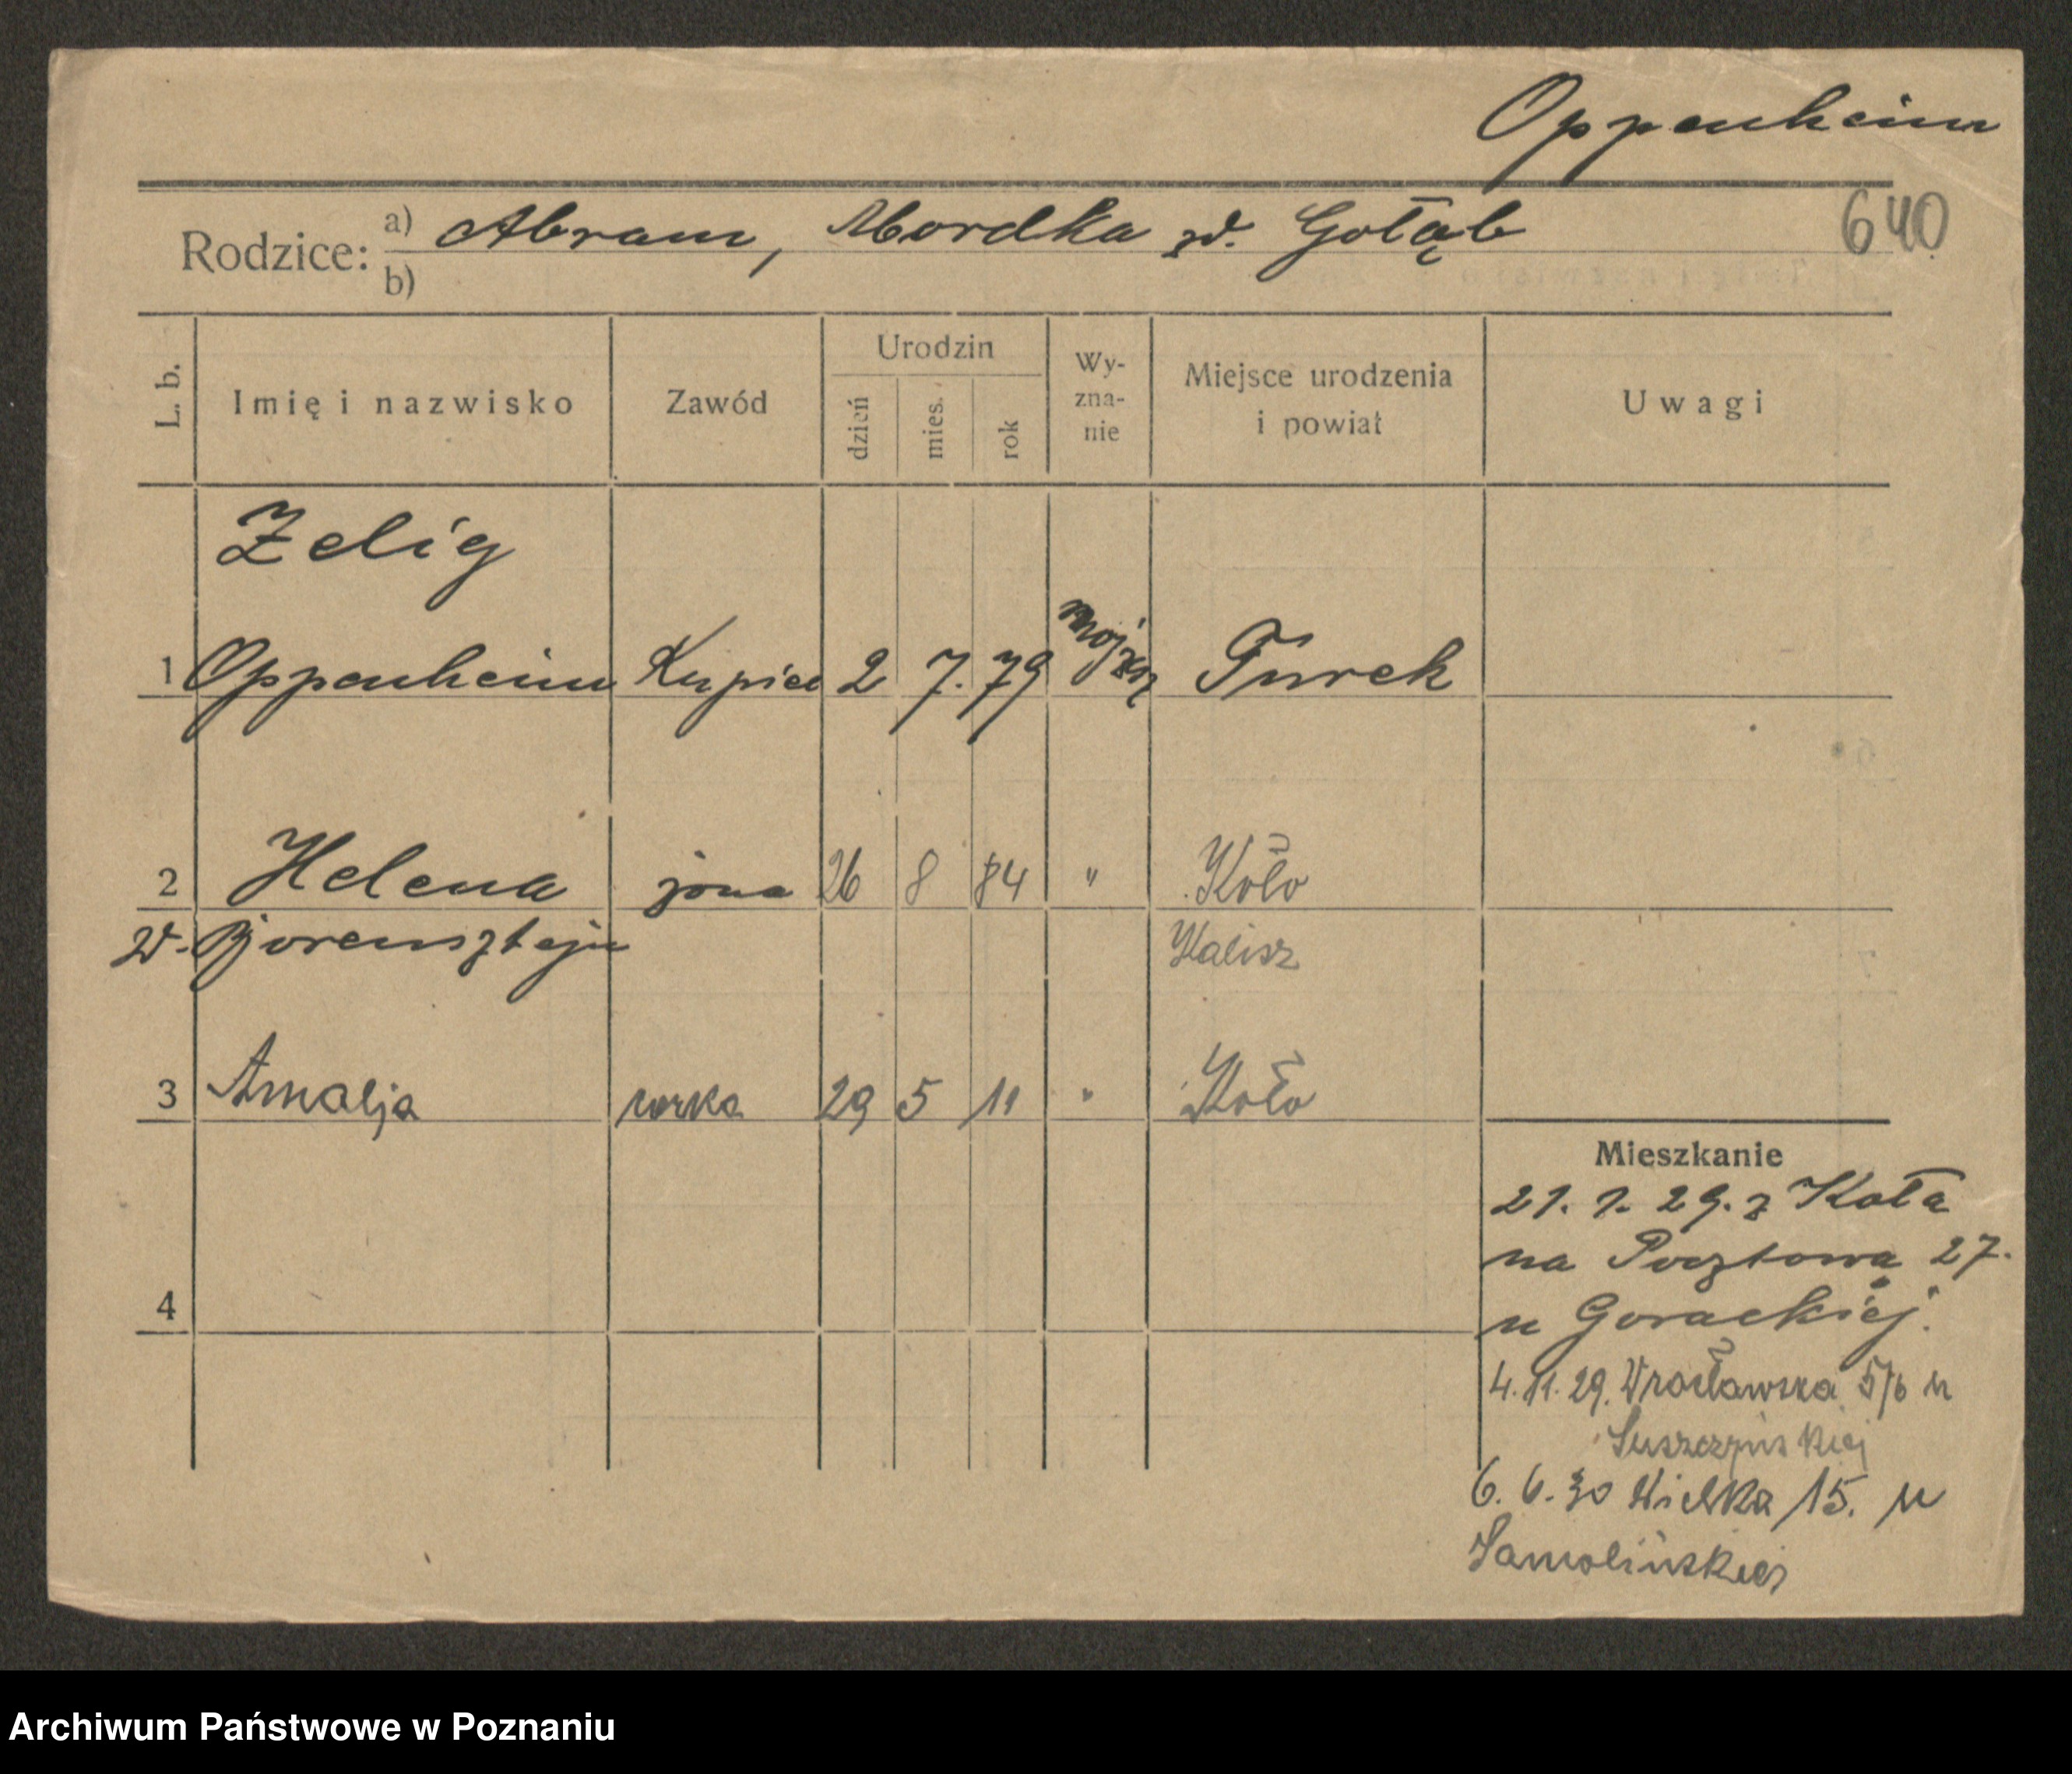 Oppenheim
640
Rodzice: a) Abram, Mordka zd. Gołąb
b)
L. b. Imię i nazwisko Zawód Urodzin dzień mies. rok Wy-zna-nie Miejsce urodzenia i powiat Uwagi
Zelig
1 Oppenheim Kupiec 2 7. 79 mojżesz Turek
2 Helena żona 26 8 84 " Koło
Kalisz
3 Amalja corka 29 5 11 " Koło
4
Mieszkanie
21. 1. 29. z Koła
na Pocztową 27.
u Gorackiej.
4. 11. 29. Wrocławska 5/6 u
6. 6. 30 Wielka 15. u
Samolińskiej
Archiwum Państwowe w Poznaniu